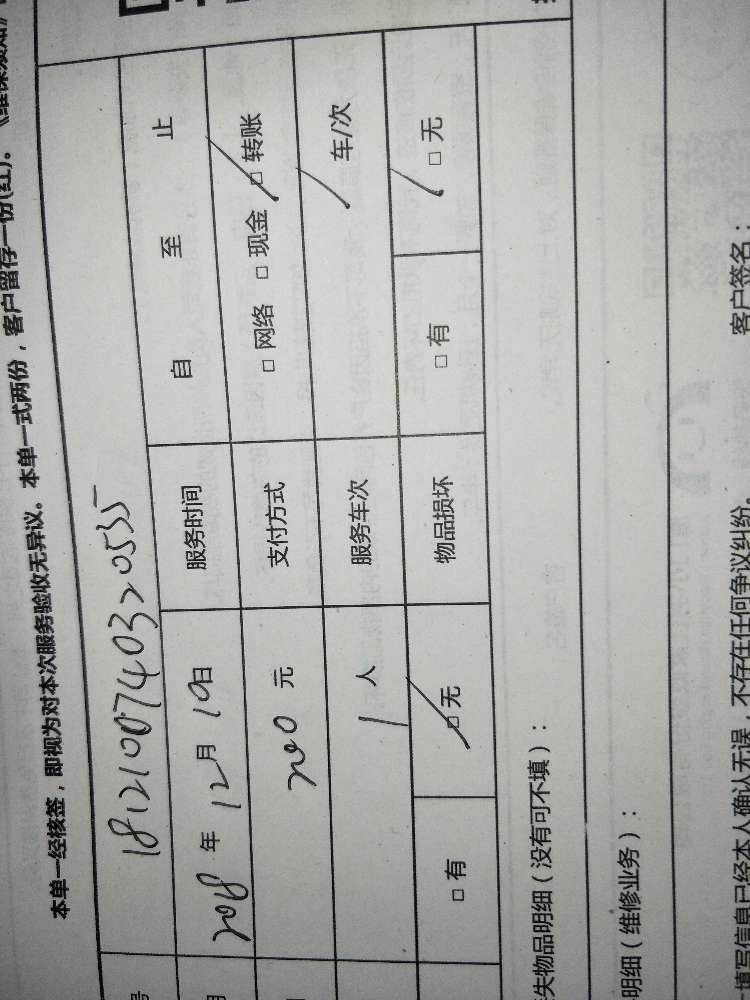 客户留存一份(红)。《维保须知》
本单一经核签，即视为对本次服务验收无异议。本单一式两份，
号 181210074032 0535
2018 年 12 月 10 日 服务时间 自 至 止
200 元 支付方式 □ 网络 □ 现金 □ 转账
1 人 服务车次 / 车/次
□ 有 □ 无 物品损坏 □ 有 □ 无
失物品明细（没有可不填）：
明细（维修业务）：
填写信息已经本人确认无误，不存在任何争议纠纷。 客户签名：